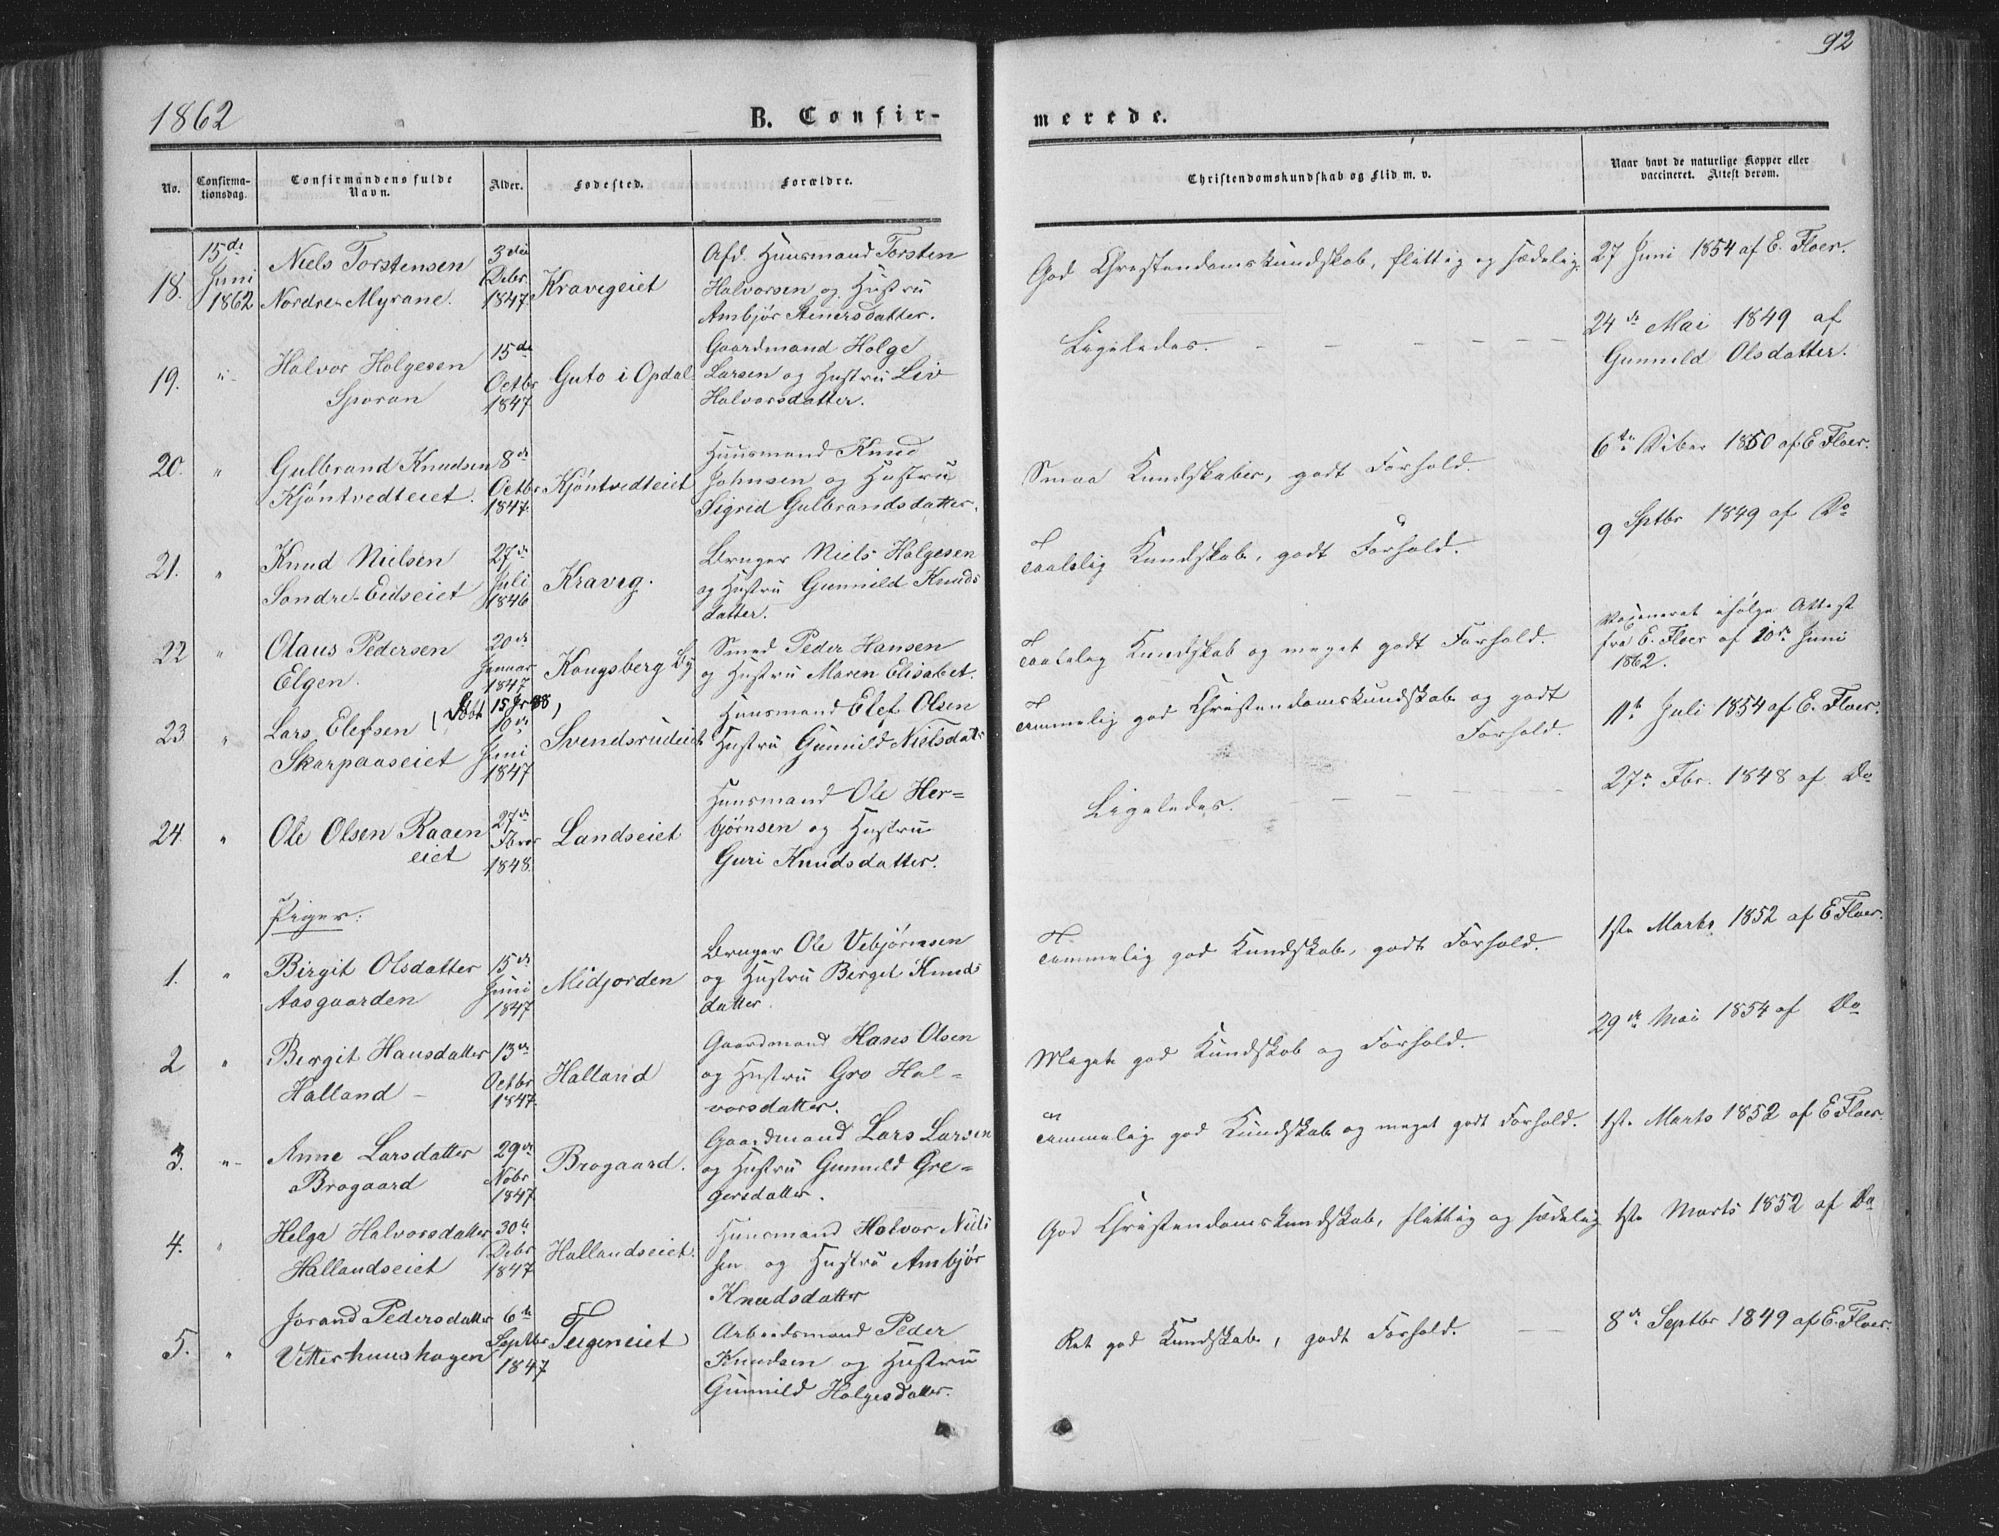 92
1862
B. Confir-
merede.
No.
Confirma-
tionsdag.
Confirmandens fulde
Navn.
Alder.
Fødested.
Forældre.
Christendomskundskab og Flid m. v.
Naar havt de naturlige Kopper eller
vaccineret. Attest derom.
18.
15de
Juni
1862
Niels Torstensen
Nordre-Myrane.
3die
Debr
1847.
Kravigeiet
Afd. Huusmand Torsten
Halvorsen og Hustru
Ambjør Stenersdatter.
God Christendomskundskab, flittig og sædelig.
27 Juni 1854 af E. Floer.
19.
"
Halvor Holgesen
Sporan
15de
Octbr
1847.
Guto i Opdal
Gaardmand Holge
Larsen og Hustru Liv
Halvorsdatter.
Ligeledes. — — — — — —
24de Mai 1849 af
Gunnild Olsdatter.
20.
"
Gulbrand Knudsen
Kjöntvedteiet.
8de
Octbr
1847.
Kjöntvedteiet
Huusmand Knud
Johnsen og Hustru
Sigrid Gulbrandsdatter.
Smaa Kundskaber, godt Forhold.
6te Diber 1850 af E Floer.
21.
"
Knud Nielsen
Søndre-Eidseiet
27de
Juli
1846
Kravig.
Bruger Niels Holgesen
og Hustru Gunnild Knuds
datter.
Taalelig Kundskab, godt Forhold.
9 Sptbr 1849 af Do
22
"
Olaus Pedersen
Elgen.
20de
Januar
1847
Kongsberg By
Smed Peder Hansen
og Hustru Maren Elisabet.
Taalelig Kundskab og meget godt Forhold.
Vaxineret ifølge Attest
fra E. Floer af 20de Juni
1862.
23
"
Lars Elefsen
Skarpaaseiet
10de
Juni
1847
Svendsrudeiet
Huusmand Elef Olsen
Hustru Gunnild Nielsdatr
Temmelig god Christendomskundskab og godt
Forhold.
11te Juli 1854 af E. Floer.
24.
"
Ole Olsen Raaen
eiet
27de
Fbrar
1848.
Landseiet
Huusmand Ole Her-
bjørnsen og Hustru
Guri Knudsdatter.
Ligeledes. — — — — —
27de Fbr. 1848 af Do
Piger:
1.
"
Birgit Olsdatter
Aasgaarden
15de
Juni
1847
Midjorden
Bruger Ole Vebjørnsen
og Hustru Birgit Knuds
datter.
Temmelig god Kundskab, godt Forhold.
1ste Marts 1852 af E Floer.
2
"
Birgit Hansdatter
Halland —
13de
Octbr
1847.
Halland
Gaardmand Hans Olsen
og Hustru Gro Hal-
vorsdatter.
Meget god Kundskab og Forhold.
29de Mai 1854 af Do
3.
"
Anne Larsdatter
Brogaard
29de
Nobr
1847.
Brogaard.
Gaardmand Lars Larsen
og Hustru Gunnild Gre-
gersdatter.
Temmelig god Kundskab og meget godt Forhold.
1ste Marts 1852 af E Floer.
4.
"
Helga Halvorsdatter
Hallandseiet
30te
Debr
1847
Hallandseiet.
Huusmand Halvor Niel
sen og Hustru Ambjør
Knudsdatter
God Christendomskundskab, flittig og sædelig
1ste Marts 1852 af Do
5.
"
Jorand Pedersdatter
Vitterhuushagen
6te
Septbr
1847
Teigeneiet
Arbeidsmand Peder
Knudsen og Hustru
Gunnild Holgesdatter.
Ret god Kundskab, godt Forhold. —
8de Septbr 1849 af E. Floer.